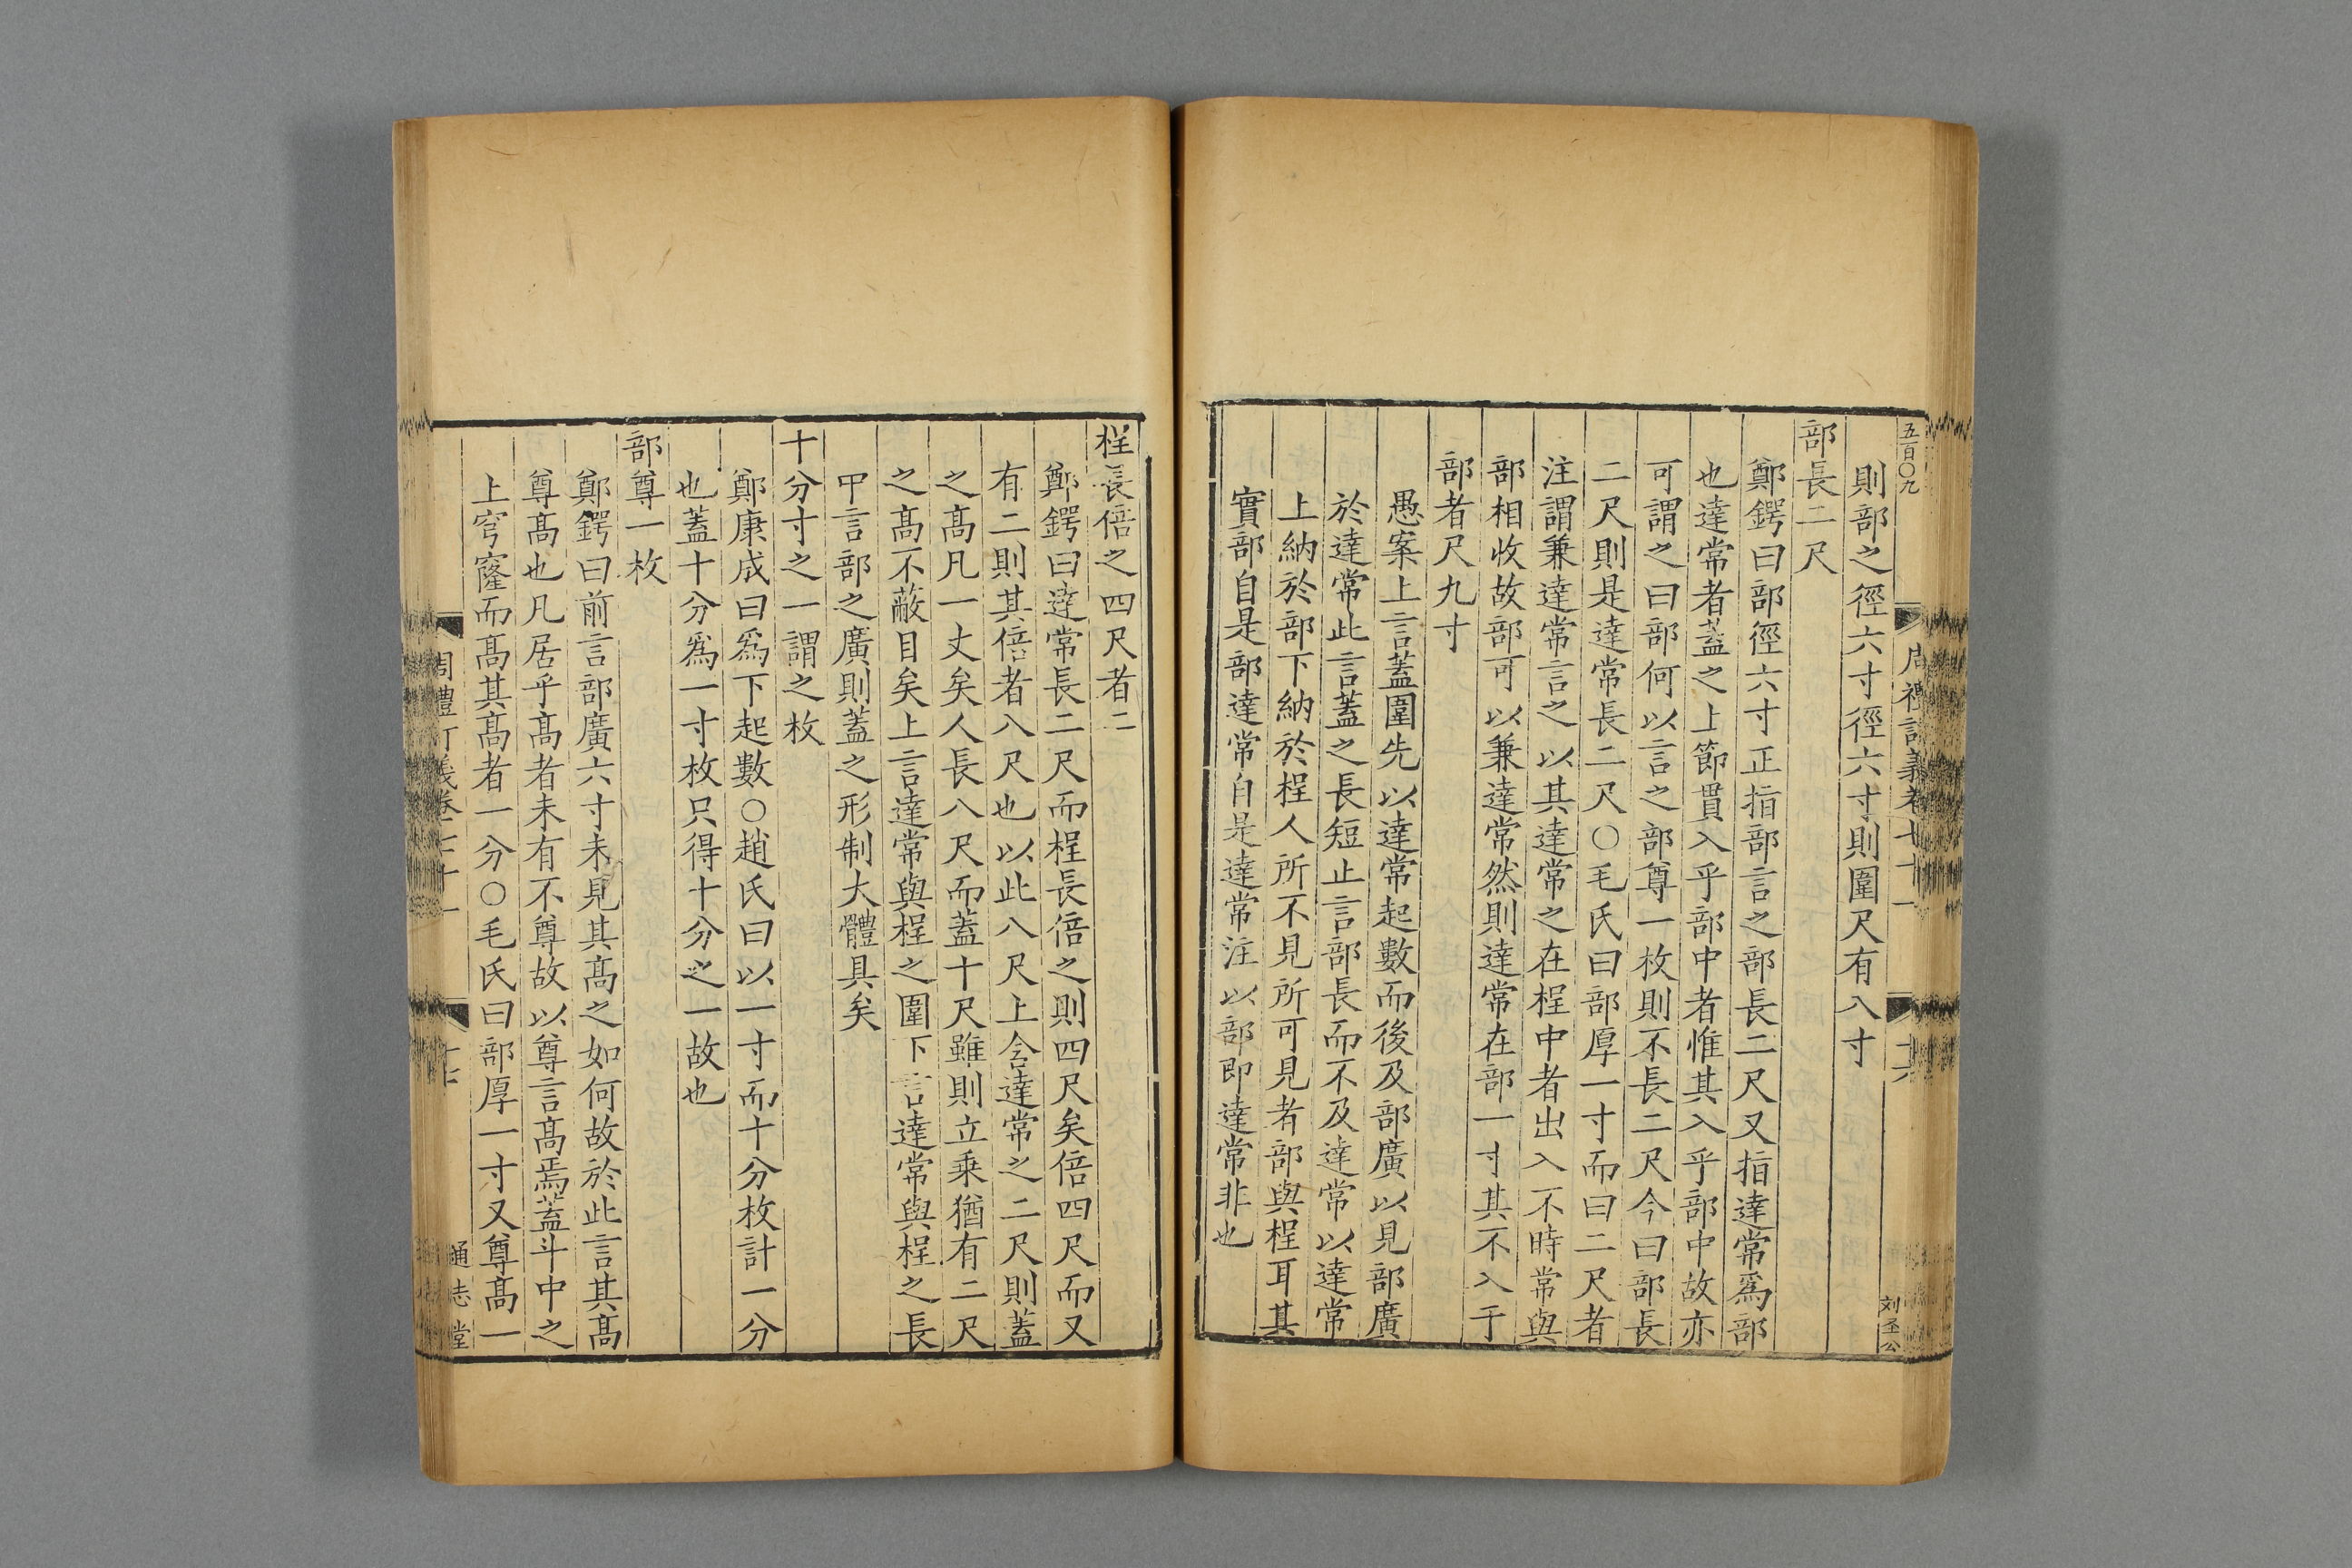 五百〇九
則部之徑六寸徑六寸則圍尺有八寸
部長二尺
鄭鍔曰部徑六寸正指部言之部長二尺又指達常爲部
也達常者蓋之上節貫入乎部中者惟其入乎部中故亦
可謂之曰部何以言之部尊一枚則不長二尺今曰部長
二尺則是達常長二尺○毛氏曰部厚一寸而曰二尺者
注謂兼達常言之以其達常之在桯中者出入不時常與
部相收故部可以兼達常然則達常在部一寸其不入于
部者尺九寸
愚案上言蓋圍先以達常起數而後及部廣以見部廣
於達常此言蓋之長短止言部長而不及達常以達常
上納於部下納於桯人所不見所可見者部與桯耳其
實部自是部達常自是達常注以部即達常非也
周禮訂義卷七十一
十六
刘圣公
桯長倍之四尺者二
鄭鍔曰達常長二尺而桯長倍之則四尺矣倍四尺而又
有二則其倍者八尺也以此八尺上含達常之二尺則蓋
之高凡一丈矣人長八尺而蓋十尺雖則立乘猶有二尺
之高不蔽目矣上言達常與桯之圍下言達常與桯之長
中言部之廣則蓋之形制大體具矣
十分寸之一謂之枚
鄭康成曰爲下起數○趙氏曰以一寸而十分枚計一分
也蓋十分爲一寸枚只得十分之一故也
部尊一枚
鄭鍔曰前言部廣六寸未見其高之如何故於此言其高
尊高也凡居乎高者未有不尊故以尊言高焉蓋斗中之
上穹窿而高其高者一分○毛氏曰部厚一寸又尊高一
周禮訂義卷七十一
十七
通志堂